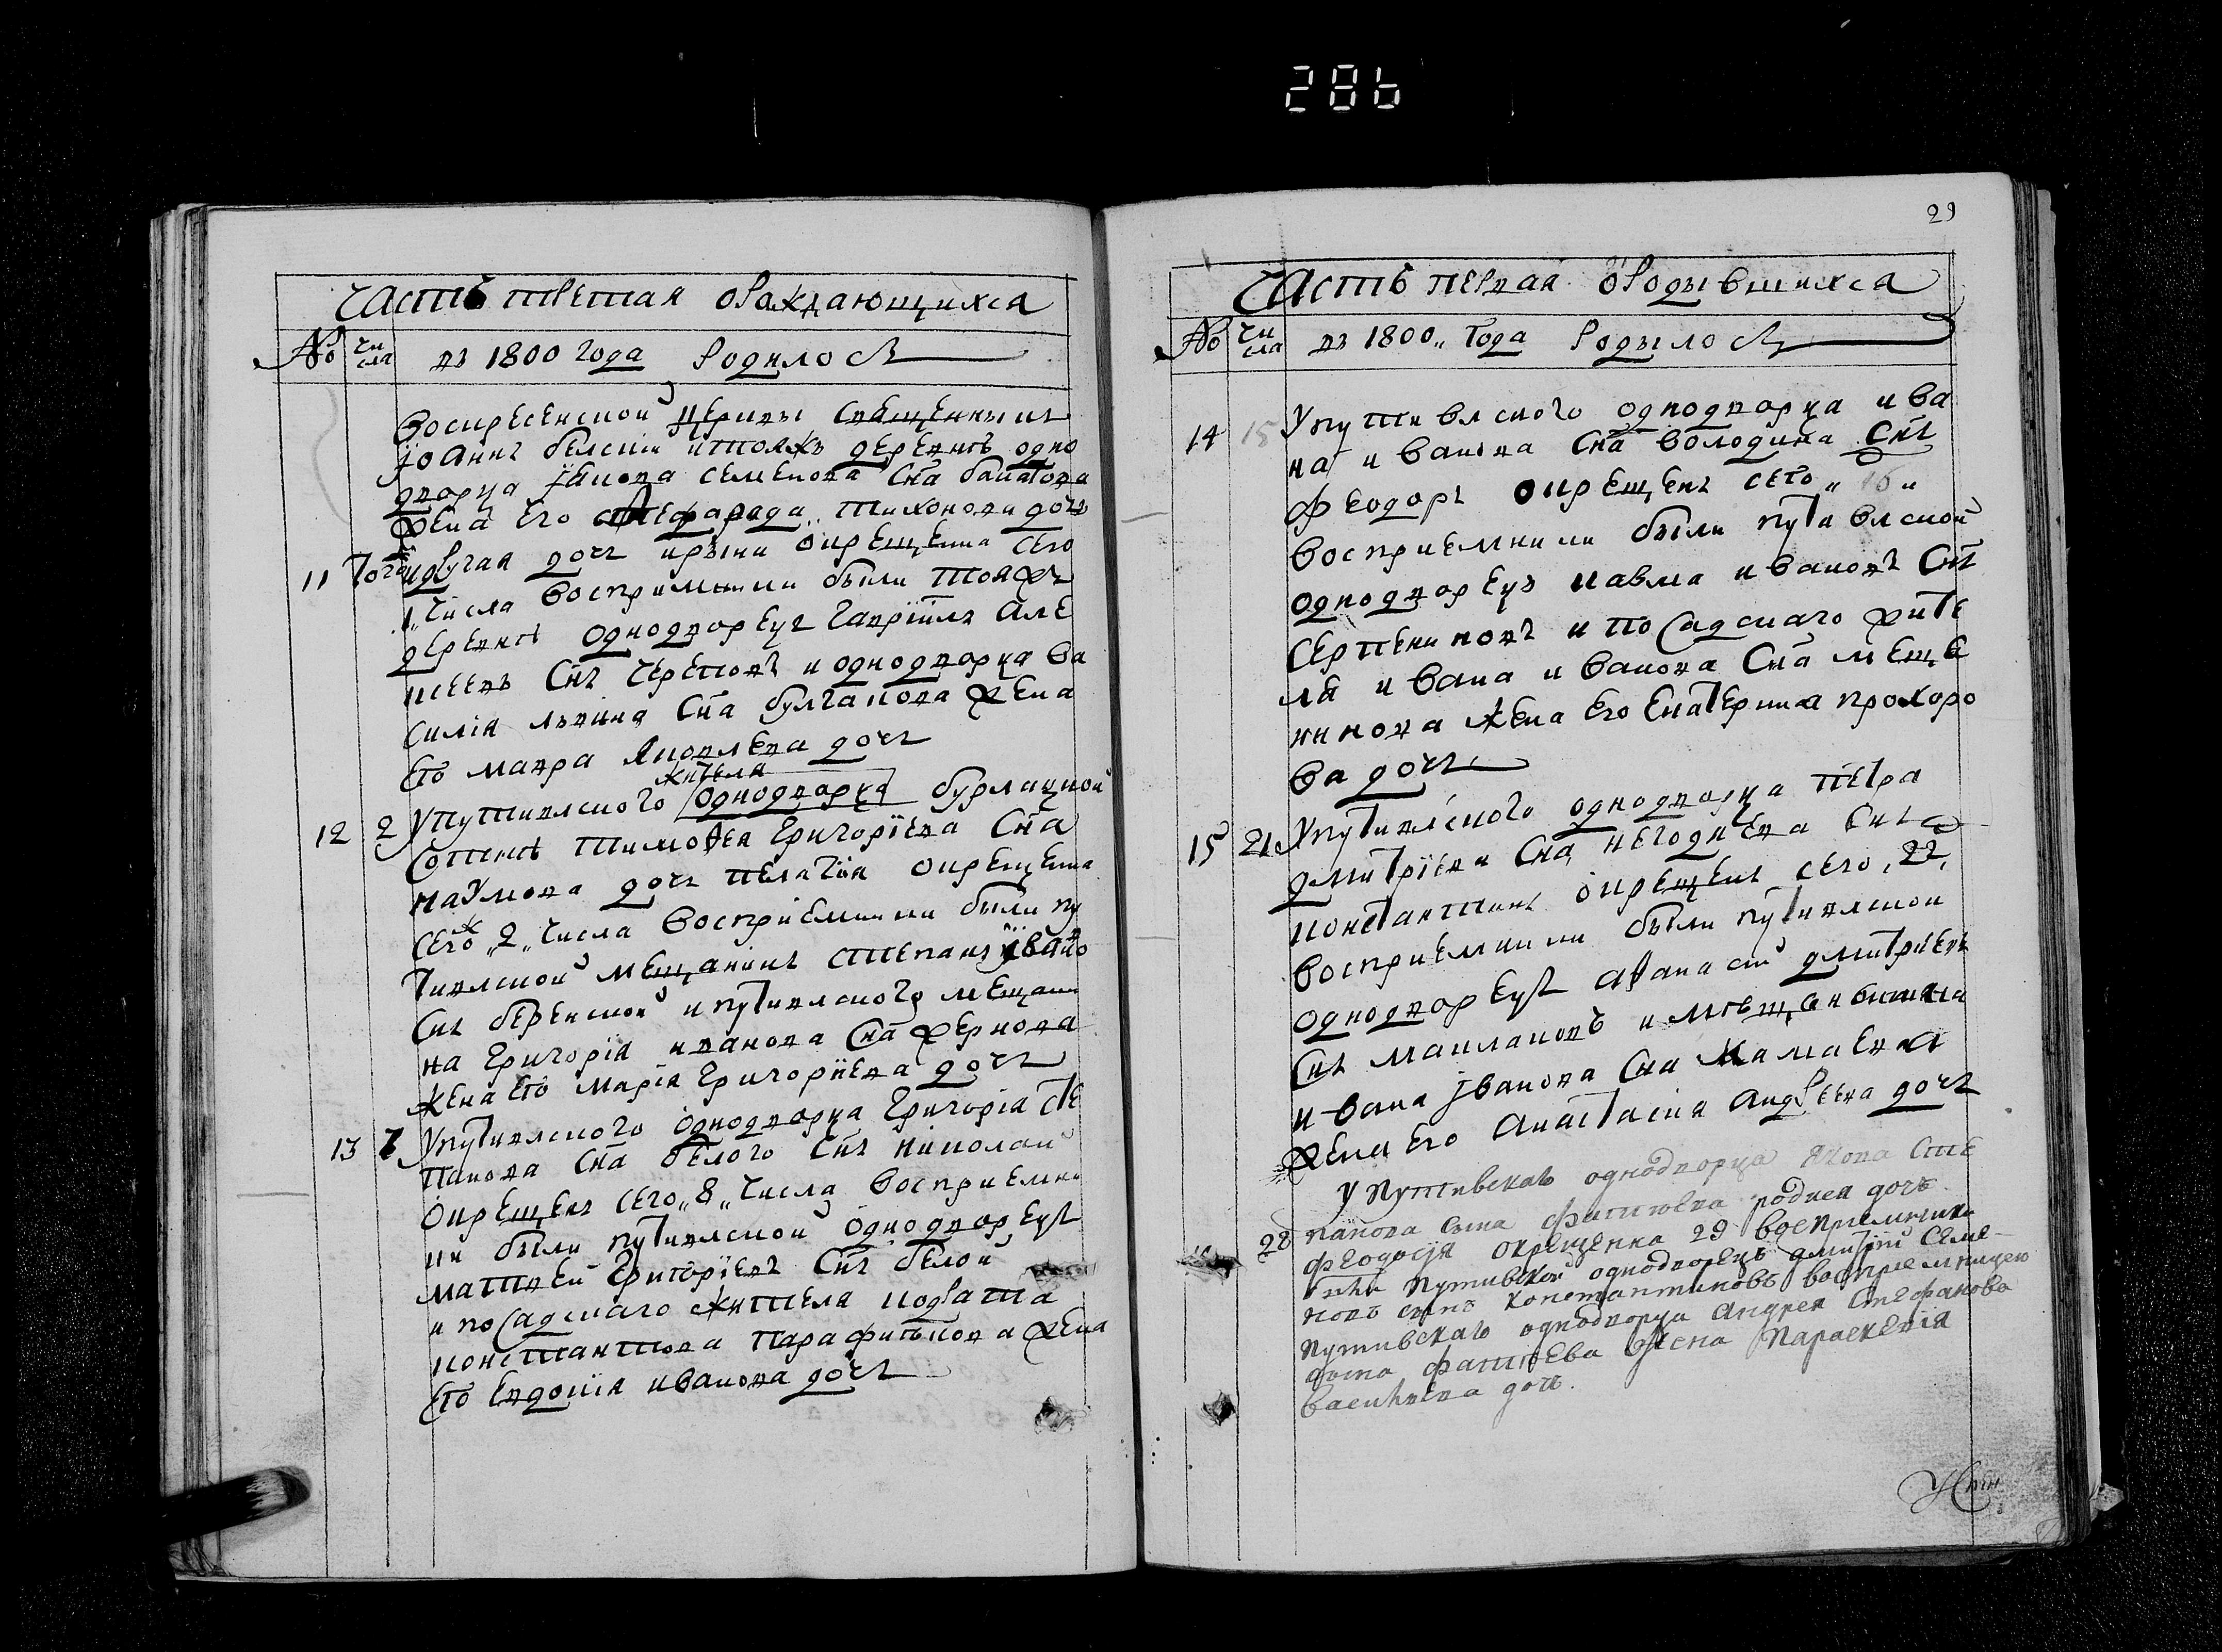 286
Часть третая ораждающихся
№ числа въ 1800 года родилося
Воскресенской церквы священникъ
іоаннъ белскии тояжъ деревнѣ одно
дворца якова семенова сна
жена его тихонова дочь
11 Того ж другая дочь крещенна сего
1 числа восприемники были тояжъ
деревнѣ однодворецъ гавріилъ але
ксеевъ снъ и однодворца ва
силія сна булгакова жена
его мавра яковлева дочь
жителя
12 2 У путивлского однодворца бурлицкой
сотнѣ тимоѳея григоріева сна
наумова дочь пелагия окрещенна
сего ж 2 числа восприемники были пу
тивлской мещанинъ степанъ ивано
снъ и путивлского мещани
на григорія иванова сна жернова
жена его марія григоріева дочь
13 7 У путивлского однодворца григорія сте
панова сна белого снъ николаи
окрещенъ сего 8 числа восприемни
ки были путивлской однодворецъ
матвеи григоріевъ снъ белои
и посадскаго жителя
жена
его евдокия иванова дочь
29
Часть первая ородывшихся
№ числа въ 1800 года родылося
14 15 У путивлского однодворца ива
на иванова сна володина снъ
феодоръ окрещенъ сего 16
восприемники были путивлской
однодворецъ наѵма ивановъ снъ
и посадскаго жите
ля ивана иванова сна меще
нинова жена его екатерина прохоро
ва дочь
15 21 У путивлского однодворца петра
дмитріева сна негоднева снъ
константинъ окрещенъ сего 22
восприемники были путивлской
однодворецъ аѳанасий дмитриевъ
снъ маклаковъ и
ивана іванова сна мамаева
жена его анастасия андреева дочь
28 У путивскаго однодворца якова сте
панова сына фатиева роднея дочь
феодосія окрещенна 29 восприемники
были путивской однодворецъ дмитрій семе-
новъ сынъ константиновъ восприемницею
путивскаго однодворца андрея стефанова
сына фатиева жена параскевія
василиева дочь.